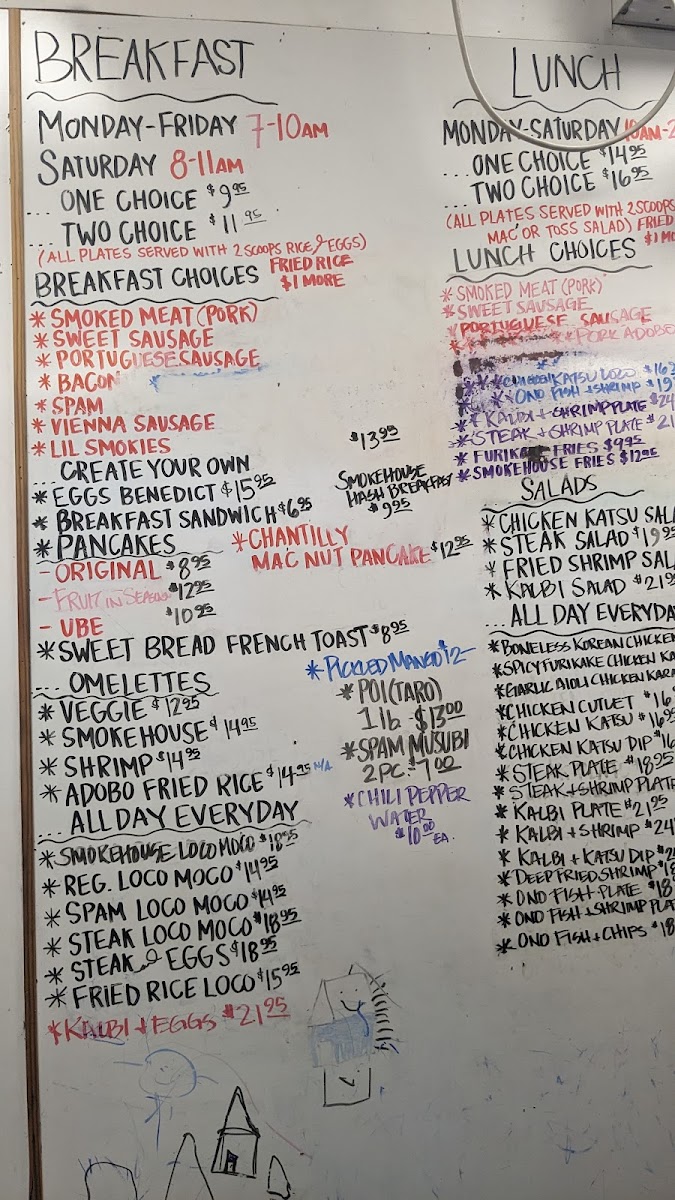 BREAKFAST
MONDAY-FRIDAY 7-10AM
SATURDAY 8-11AM
... ONE CHOICE $9.95
... TWO CHOICE $11.95
(ALL PLATES SERVED WITH 2 SCOOPS RICE & EGGS)
BREAKFAST CHOICES
FRIED RICE
$1 MORE
* SMOKED MEAT (PORK)
* SWEET SAUSAGE
* PORTUGUESE SAUSAGE
* BACON
* SPAM
* VIENNA SAUSAGE
* LIL SMOKIES
... CREATE YOUR OWN
* EGGS BENEDICT $15.95
* BREAKFAST SANDWICH $6.95
* PANCAKES
- ORIGINAL $8.95
- FRUIT IN SEASON $12.95
- UBE $10.95
* SWEET BREAD FRENCH TOAST $8.95
... OMELETTES
* VEGGIE $12.95
* SMOKEHOUSE $14.95
* SHRIMP $14.95
* ADOBO FRIED RICE $14.95 N/A
... ALL DAY EVERYDAY
* SMOKEHOUSE LOCO MOCO $18.95
* REG. LOCO MOCO $14.95
* SPAM LOCO MOCO $14.95
* STEAK LOCO MOCO $18.95
* STEAK & EGGS $18.95
* FRIED RICE LOCO $15.95
* KALBI + EGGS $21.95
$13.95
SMOKEHOUSE
HASH BREAKFAST
$9.95
* CHANTILLY
MAC NUT PANCAKE $12.95
* PICKLED MANGO 12-
* POI (TARO)
1 lb - $13.00
* SPAM MUSUBI
2PC. $7.00
* CHILI PEPPER
WATER
$10.00 EA.
LUNCH
MONDAY-SATURDAY 10AM-2
... ONE CHOICE $14.95
... TWO CHOICE $16.95
(ALL PLATES SERVED WITH 2 SCOOPS
MAC OR TOSS SALAD) FRIED
$1 MO
LUNCH CHOICES
* SMOKED MEAT (PORK)
* SWEET SAUSAGE
* PORTUGUESE SAUSAGE
* PORK ADOBO
* CHICKEN KATSU LOCO $16
* ONO FISH + SHRIMP $19
* KALBI + SHRIMP PLATE $24
* STEAK + SHRIMP PLATE $21
* FURIKAKE FRIES $9.95
* SMOKEHOUSE FRIES $12.95
SALADS
* CHICKEN KATSU SAL
* STEAK SALAD $19.95
* FRIED SHRIMP SAL
* KALBI SALAD $21.9
... ALL DAY EVERYDA
* BONELESS KOREAN CHICKEN
* SPICY FURIKAKE CHICKEN KA
* GARLIC AIOLI CHICKEN KARA
* CHICKEN CUTLET $16
* CHICKEN KATSU $16.95
* CHICKEN KATSU DIP $16
* STEAK PLATE $18.95
* STEAK + SHRIMP PLATE
* KALBI PLATE $21.95
* KALBI + SHRIMP $24
* KALBI + KATSU DIP $2
* DEEP FRIED SHRIMP $18
* ONO FISH PLATE $18
* ONO FISH + SHRIMP PLA
* ONO FISH + CHIPS $18